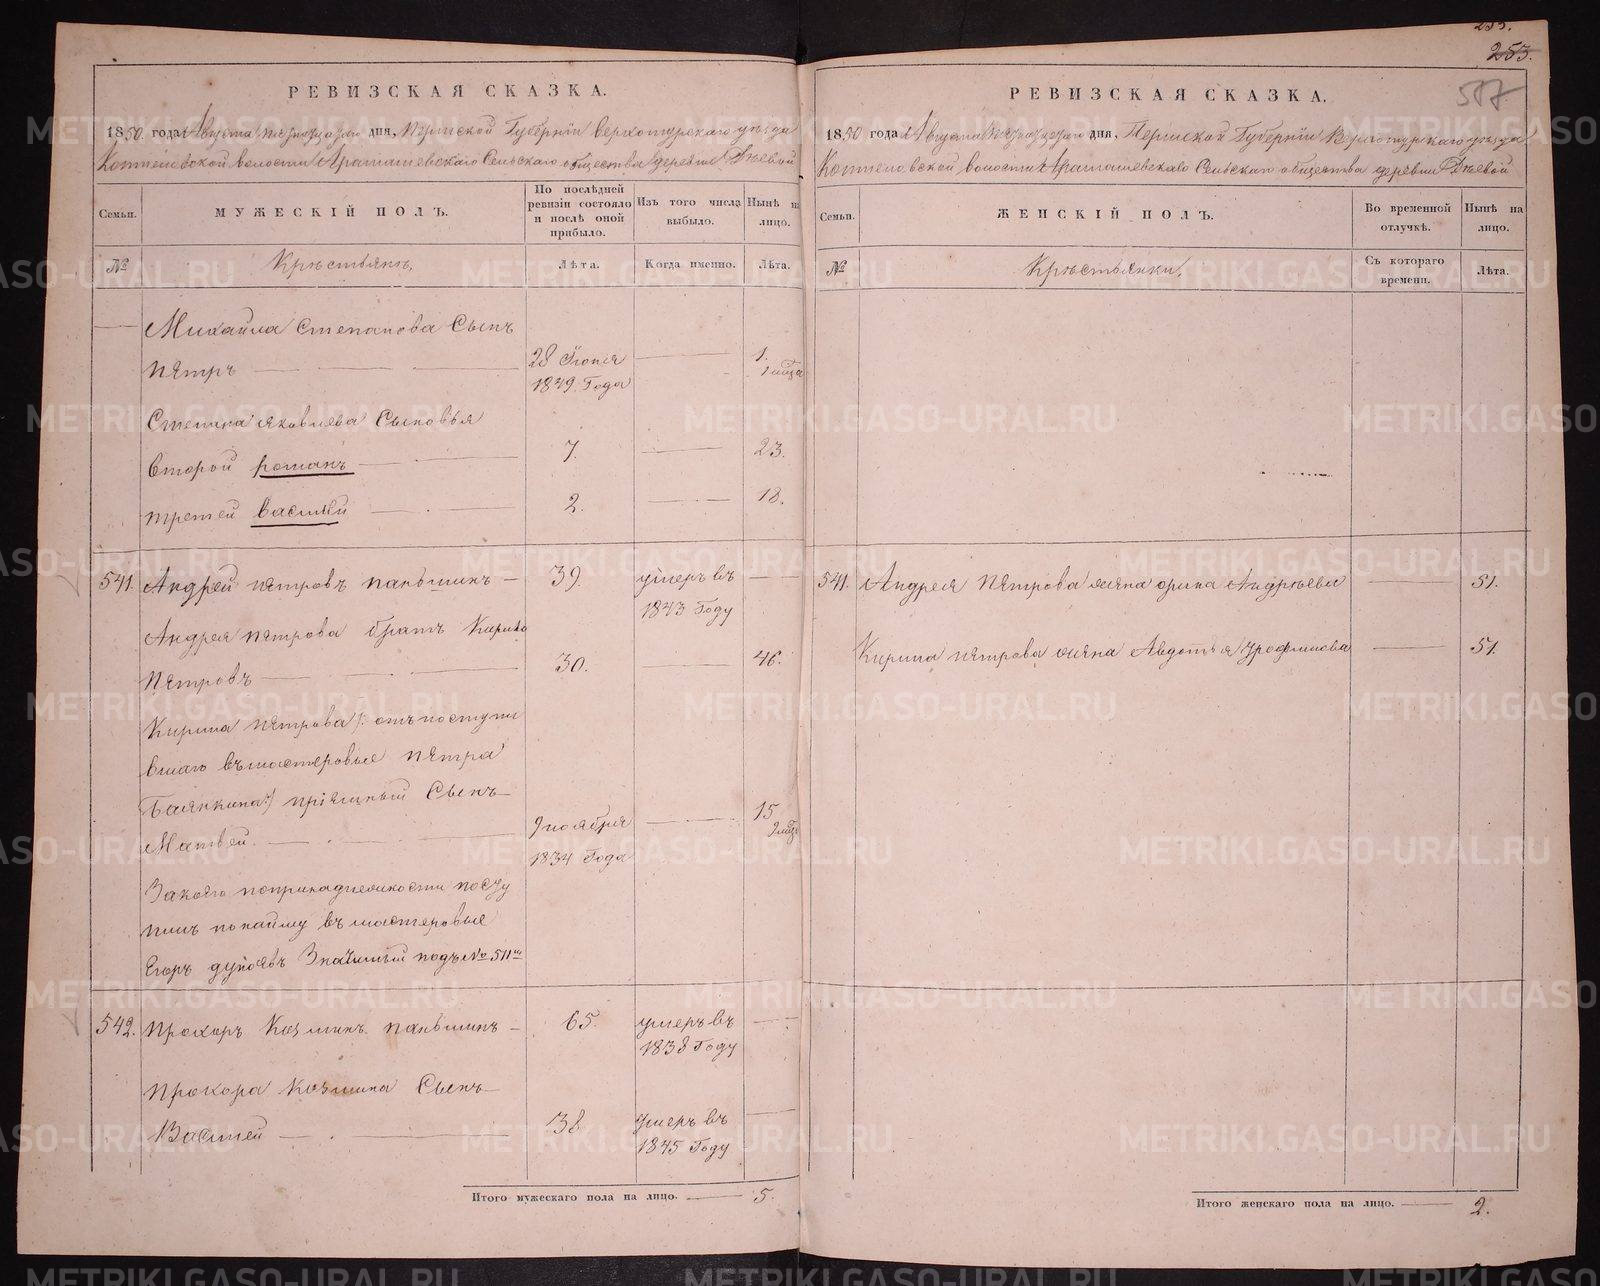 253.
РЕВИЗСКАЯ СКАЗКА.
1850 года Августа дня, Пермской Губерніи верхотурскаго уѣзда
волости Сельскаго общества деревни
Семьи.
МУЖЕСКІЙ ПОЛЪ.
По послѣдней ревизіи состояло и послѣ оной прибыло.
Изъ того числа выбыло.
Нынѣ на лицо.
№
Крѣстьянѣ,
Лѣта.
Когда именно.
Лѣта.
Михайла Степанова Сынъ
пѣтръ 28 Іюня 1849 Года 1.
Степана яковлева Сыновья
второй романъ 7. 23.
третей василей 2. 18.
541. Андрей пѣтровъ паньшинъ 39. умеръ въ 1843 Году
Андрея пѣтрова братъ Кирило
пѣтровъ 30. 46.
Кирила пѣтрова /: отъ поступи
вшаго въ мастеровые пѣтра
:/ пріемный Сынъ
Матвей. 9 ноября 1834 Года 15
Закого попринадлежности посту
пилъ понайму въ мастеровые
Егоръ подъ № 511м
542. прохоръ Козминъ паньшинъ 65. умеръ въ 1838 Году
прохора Козмина Сынъ
Васілей 38 умеръ въ 1845 Году
Итого мужескаго пола на лицо. 5.
253.
517
РЕВИЗСКАЯ СКАЗКА.
1850 года Августа дня, Пермской Губерніи Верхотурскаго уѣзда
волости Сельскаго общества деревни
Семьи.
ЖЕНСКІЙ ПОЛЪ.
Во временной отлучкѣ.
Нынѣ на лицо.
№
Крѣстьянки,
Съ котораго времени.
Лѣта.
541. Андрея Пѣтрова жена орина Андрѣева 51.
Кирила пѣтрова жена Авдотья 51.
Итого женскаго пола на лицо. 2.
METRIKI.GASO-URAL.RU